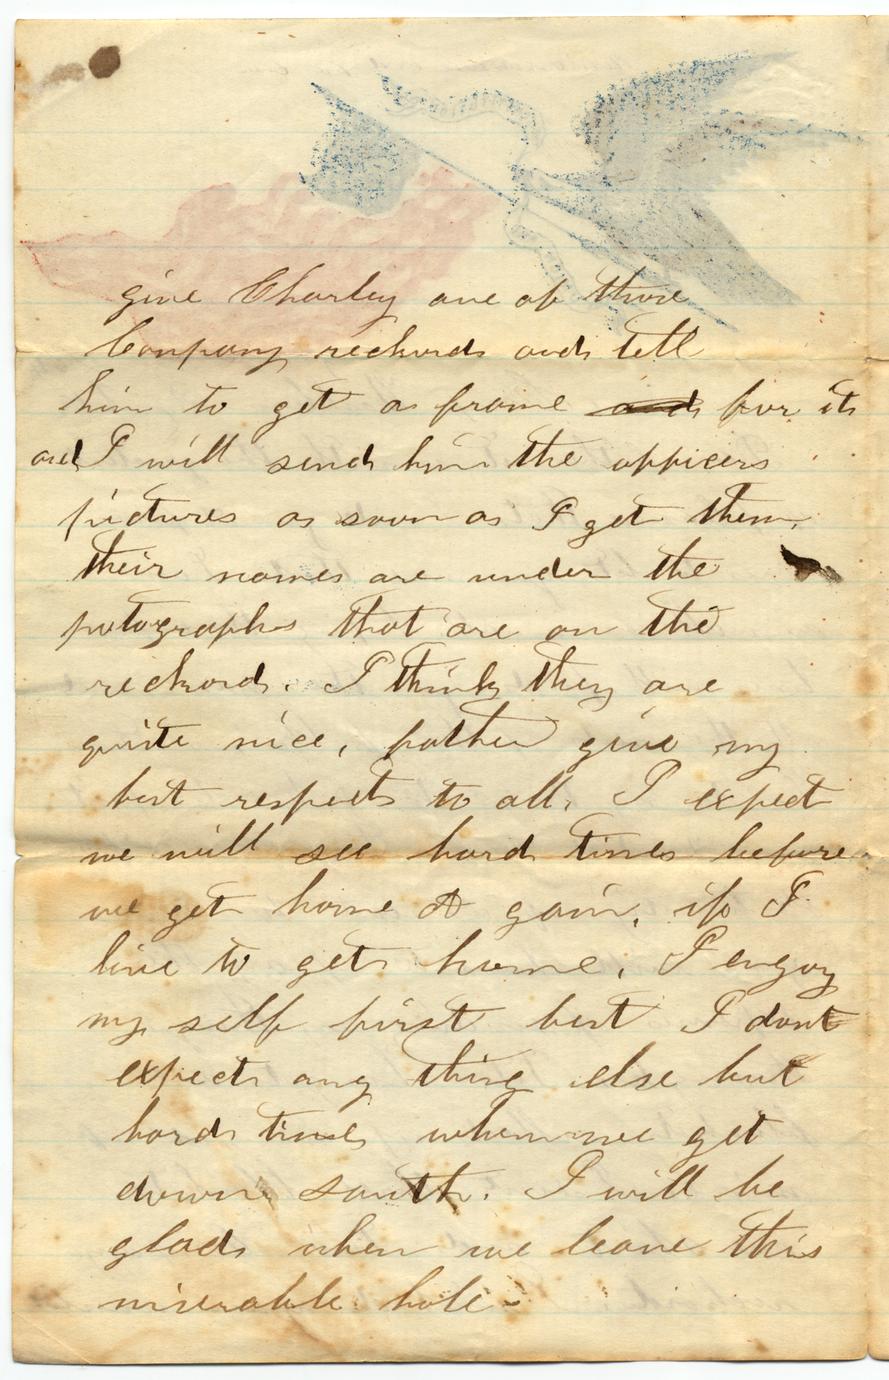 give Charley one of those
Company reckords and tell
him to get a frame and for it
and I will send him the officers
pictures as soon as I get them,
their names are under the
potographs that are on the
reckord. I think they are
quite nice, father give my
best respects to all, I expect
we will see hard times before
we get home A gain, if I
live to get home, I engoy
my self first best I dont
expect any thing else but
hard times when we get
down south. I will be
glad when we leave this
miserable hole